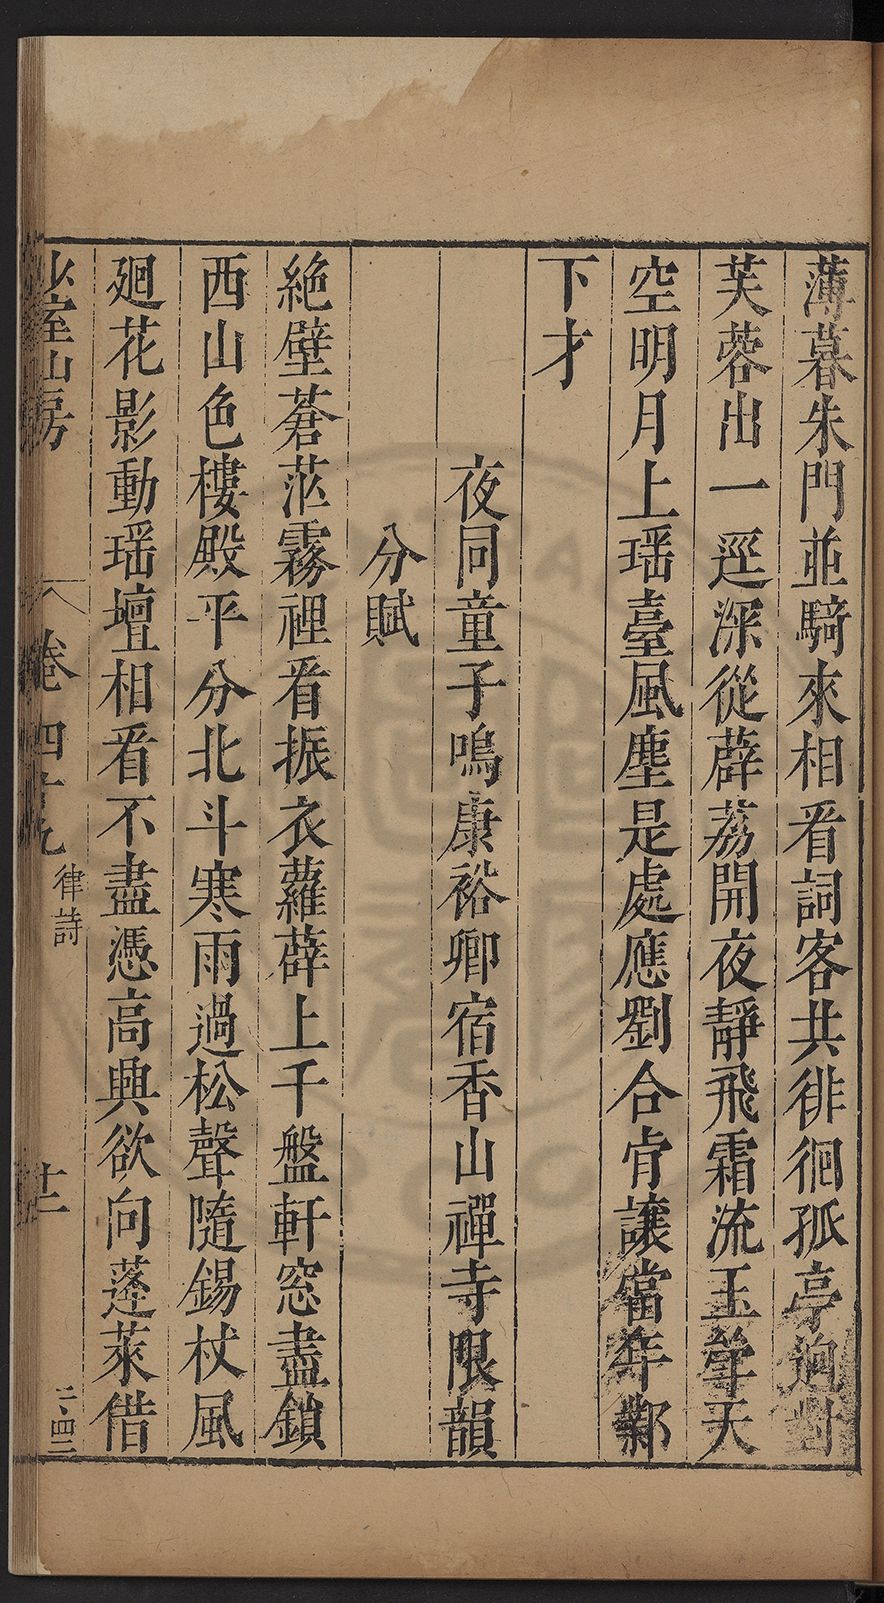 薄暮朱門並騎來相看詞客共徘徊孤亭逈對
芙蓉出一逕深從薜荔開夜靜飛霜流玉笋天
空明月上瑶臺風塵是處應劉合肯讓當年鄴
下才
夜同童子鳴康裕卿宿香山禪寺限韻
分賦
絶壁蒼茫霧裡看振衣蘿薜上千盤軒窓盡鎖
西山色樓殿平分北斗寒雨過松聲隨錫杖風
廻花影動瑶壇相看不盡憑高興欲向蓬萊借
少室山房
卷四十九
律詩
十二